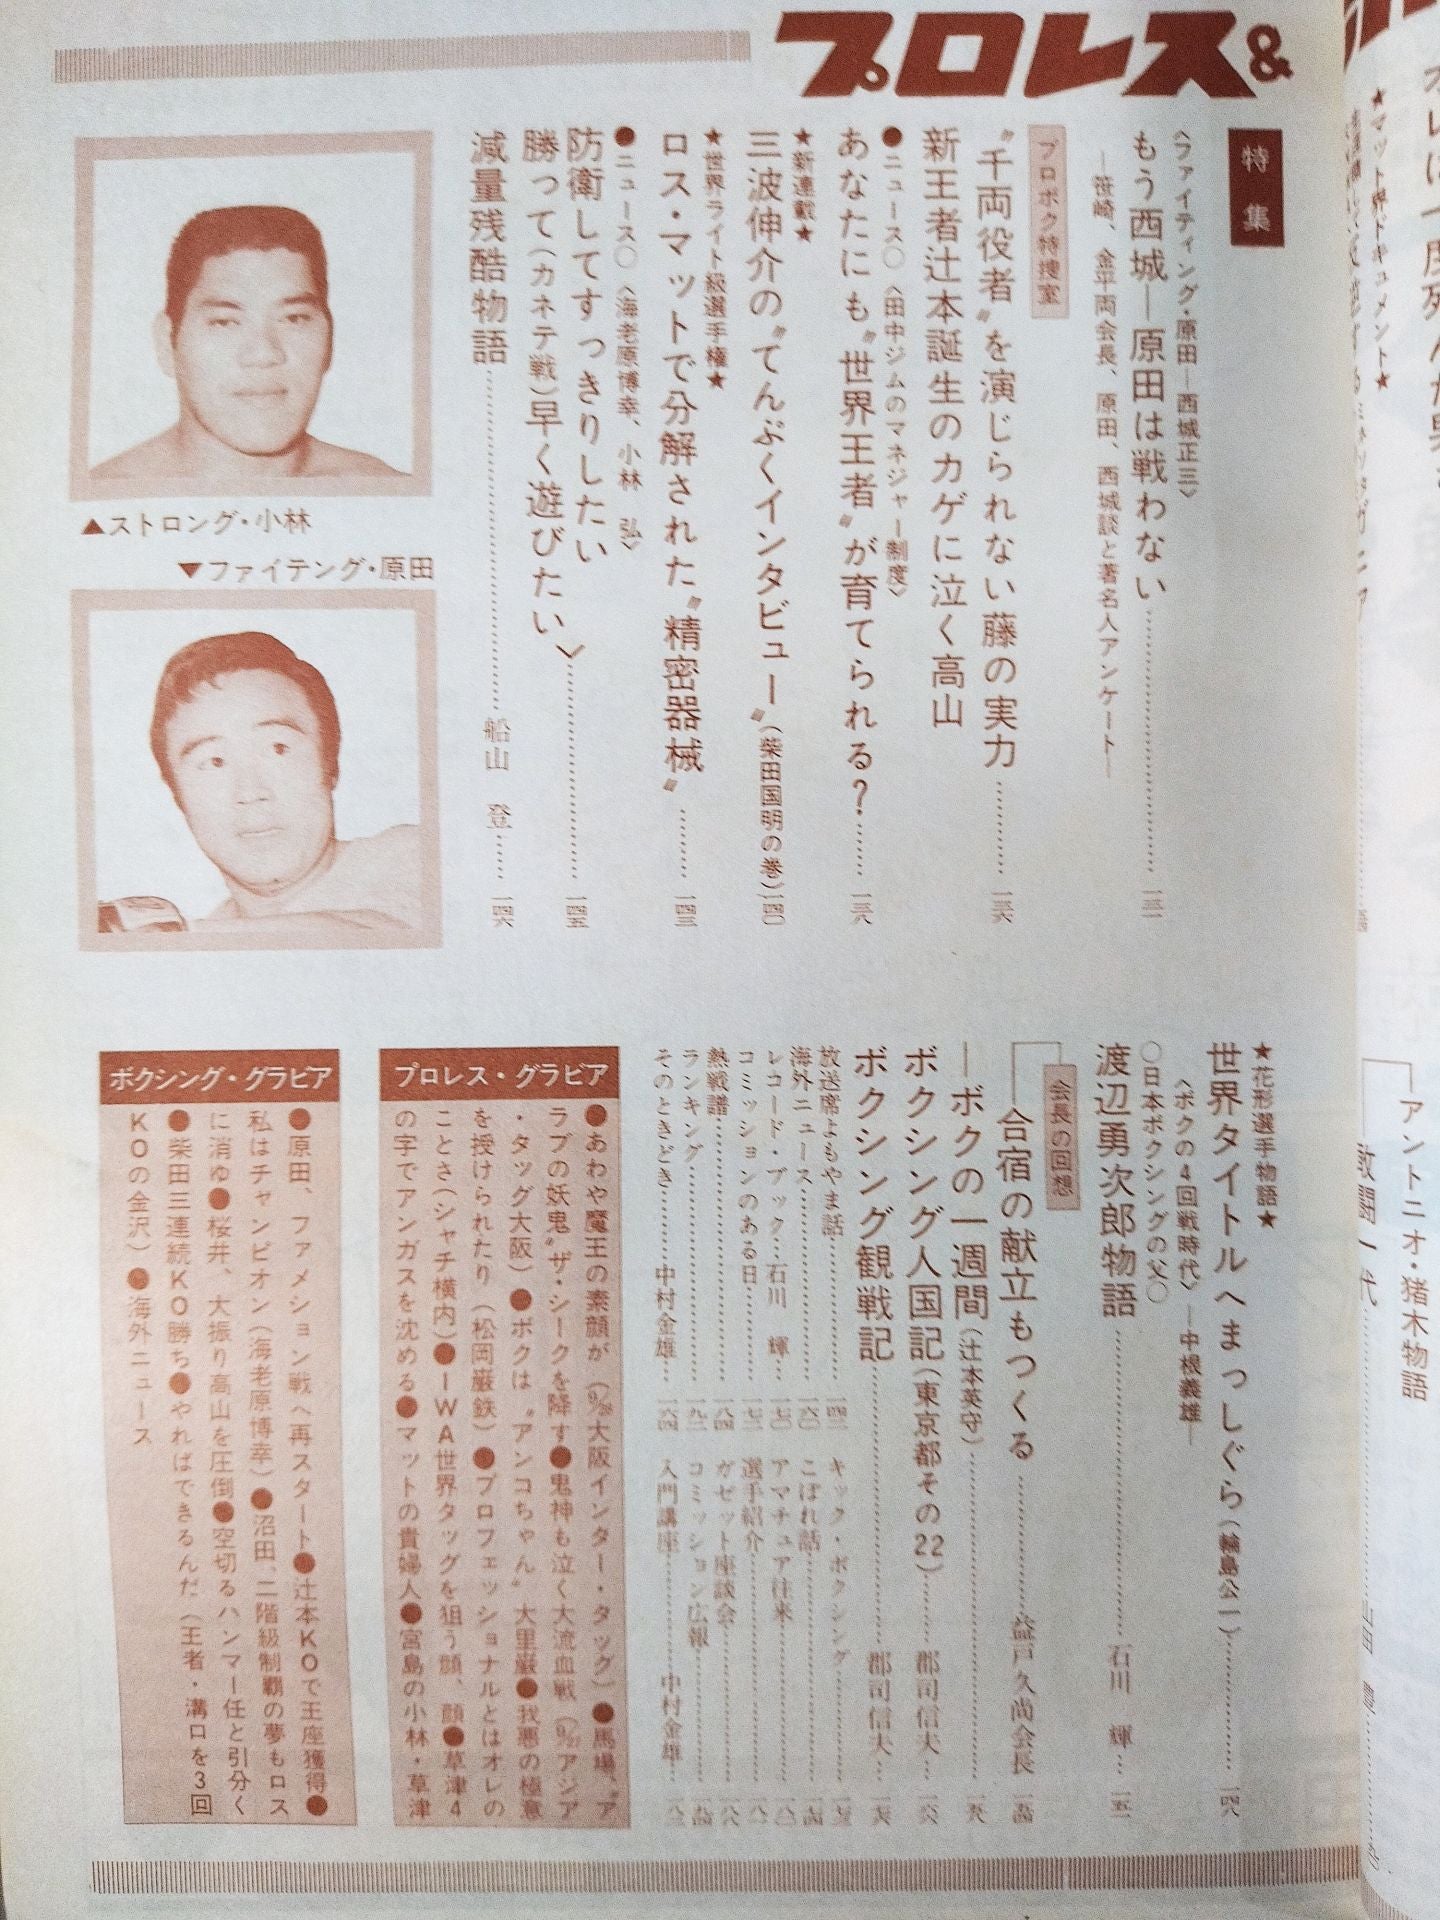 プロレス&
特集
〈ファイティング・原田―西城正三〉
もう西城―原田は戦わない
―笹崎、金平両会長、原田、西城談と著名人アンケート―
プロボク特捜室
〝千両役者〟を演じられない藤の実力
新王者辻本誕生のカゲに泣く高山
●ニュース○〈田中ジムのマネジャー制度〉
あなたにも〝世界王者〟が育てられる?……一三八
★新連載★
三波伸介の〝てんぷくインタビュー〟(柴田国明の巻)一四〇
★世界ライト級選手権★
ロス・マットで分解された〝精密器械〟……一四三
●ニュース○〈海老原博幸、小林 弘〉
防衛してすっきりしたい
勝って(カネテ戦)早く遊びたい〉……一四五
減量残酷物語……船山 登……一四六
▲ストロング・小林
▼ファイテング・原田
★花形選手物語★
世界タイトルへまっしぐら(輪島公一)……一四八
〈ボクの4回戦時代〉―中根義雄―
○日本ボクシングの父○
渡辺勇次郎物語……石川 輝……一五一
会長の回想
合宿の献立もつくる……益戸久尚会長……一五四
―ボクの一週間(辻本英守)……一五八
ボクシング人国記(東京都その22)……郡司信夫……一六六
ボクシング観戦記……郡司信夫……一七六
放送席よもやま話
海外ニュース……一六〇
レコード・ブック…石川 輝……一七〇
コミッションのある日
熱戦譜……一八四
ランキング……一九二
そのときどき……中村金雄……一六四
キック・ボクシング
こぼれ話
アマチュア往来
選手紹介
ガゼット座談会
コミッション広報
入門講座……中村金雄
プロレス・グラビア
●あわや魔王の素顔が(9/28大阪インター・タッグ)●馬場、〝ア
ラブの妖鬼〟ザ・シークを降す●鬼神も泣く大流血戦(9/27アジア
・タッグ大阪)●ボクは〝アンコちゃん〟大里巌●我悪の極意
を授けられたり(松岡巌鉄)●プロフェッショナルとはオレの
ことさ(シャチ横内)●IWA世界タッグを狙う顔、顔●草津4
の字でアンガスを沈める●マットの貴婦人●宮島の小林・草津
ボクシング・グラビア
●原田、ファメション戦へ再スタート●辻本KOで王座獲得●
私はチャンピオン(海老原博幸)●沼田、二階級制覇の夢もロス
に消ゆ●桜井、大振り高山を圧倒●空切るハンマー任と引分く
●柴田三連続KO勝ち●やればできるんだ(王者・溝口を3回
KOの金沢)●海外ニュース
★マット界ドキュメント★
アントニオ・猪木物語
敢闘一代